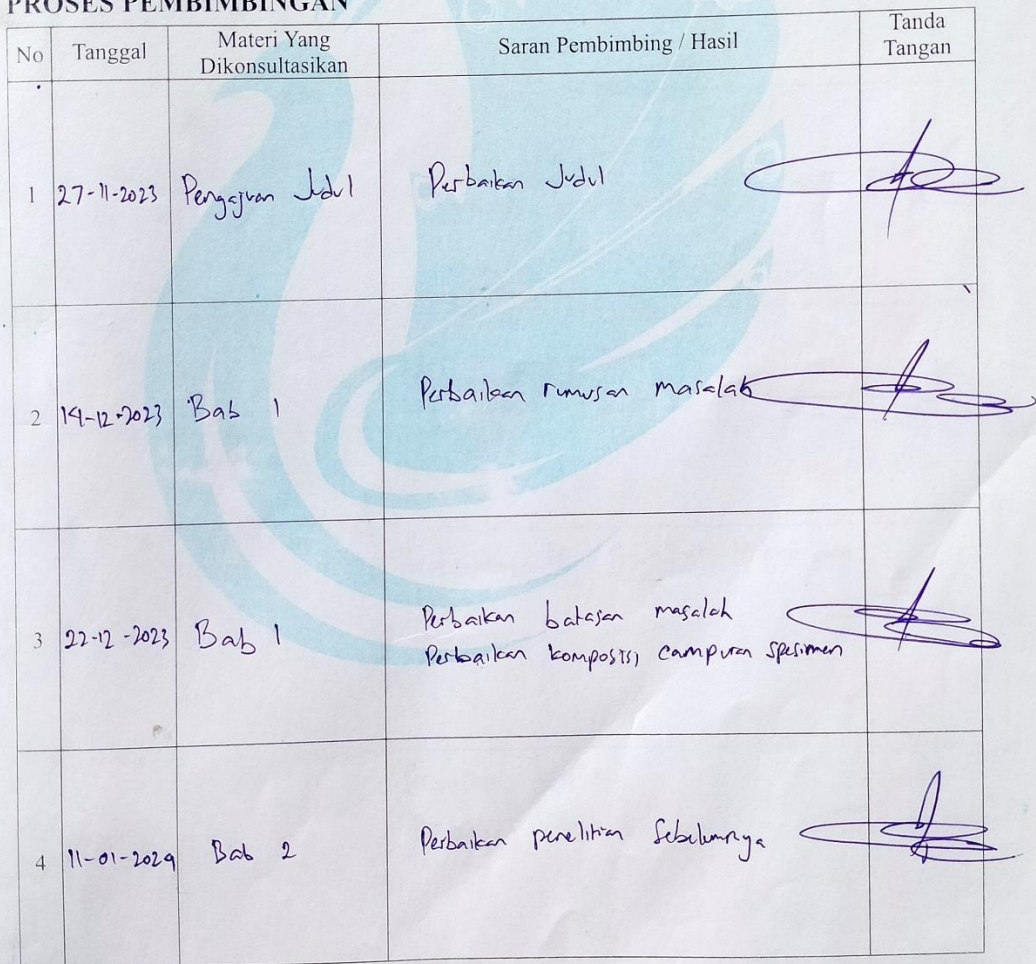 PROSES PEMBIMBINGAN
No Tanggal Materi Yang Dikonsultasikan Saran Pembimbing / Hasil Tanda Tangan
1 27-11-2023 Pengajuan Judul Perbaikan Judul
2 14-12-2023 Bab 1 Perbaikan rumusan masalah
3 22-12-2023 Bab 1 Perbaikan batasan masalah
Perbaikan komposisi campuran spesimen
4 11-01-2024 Bab 2 Perbaikan penelitian Sebelumnya